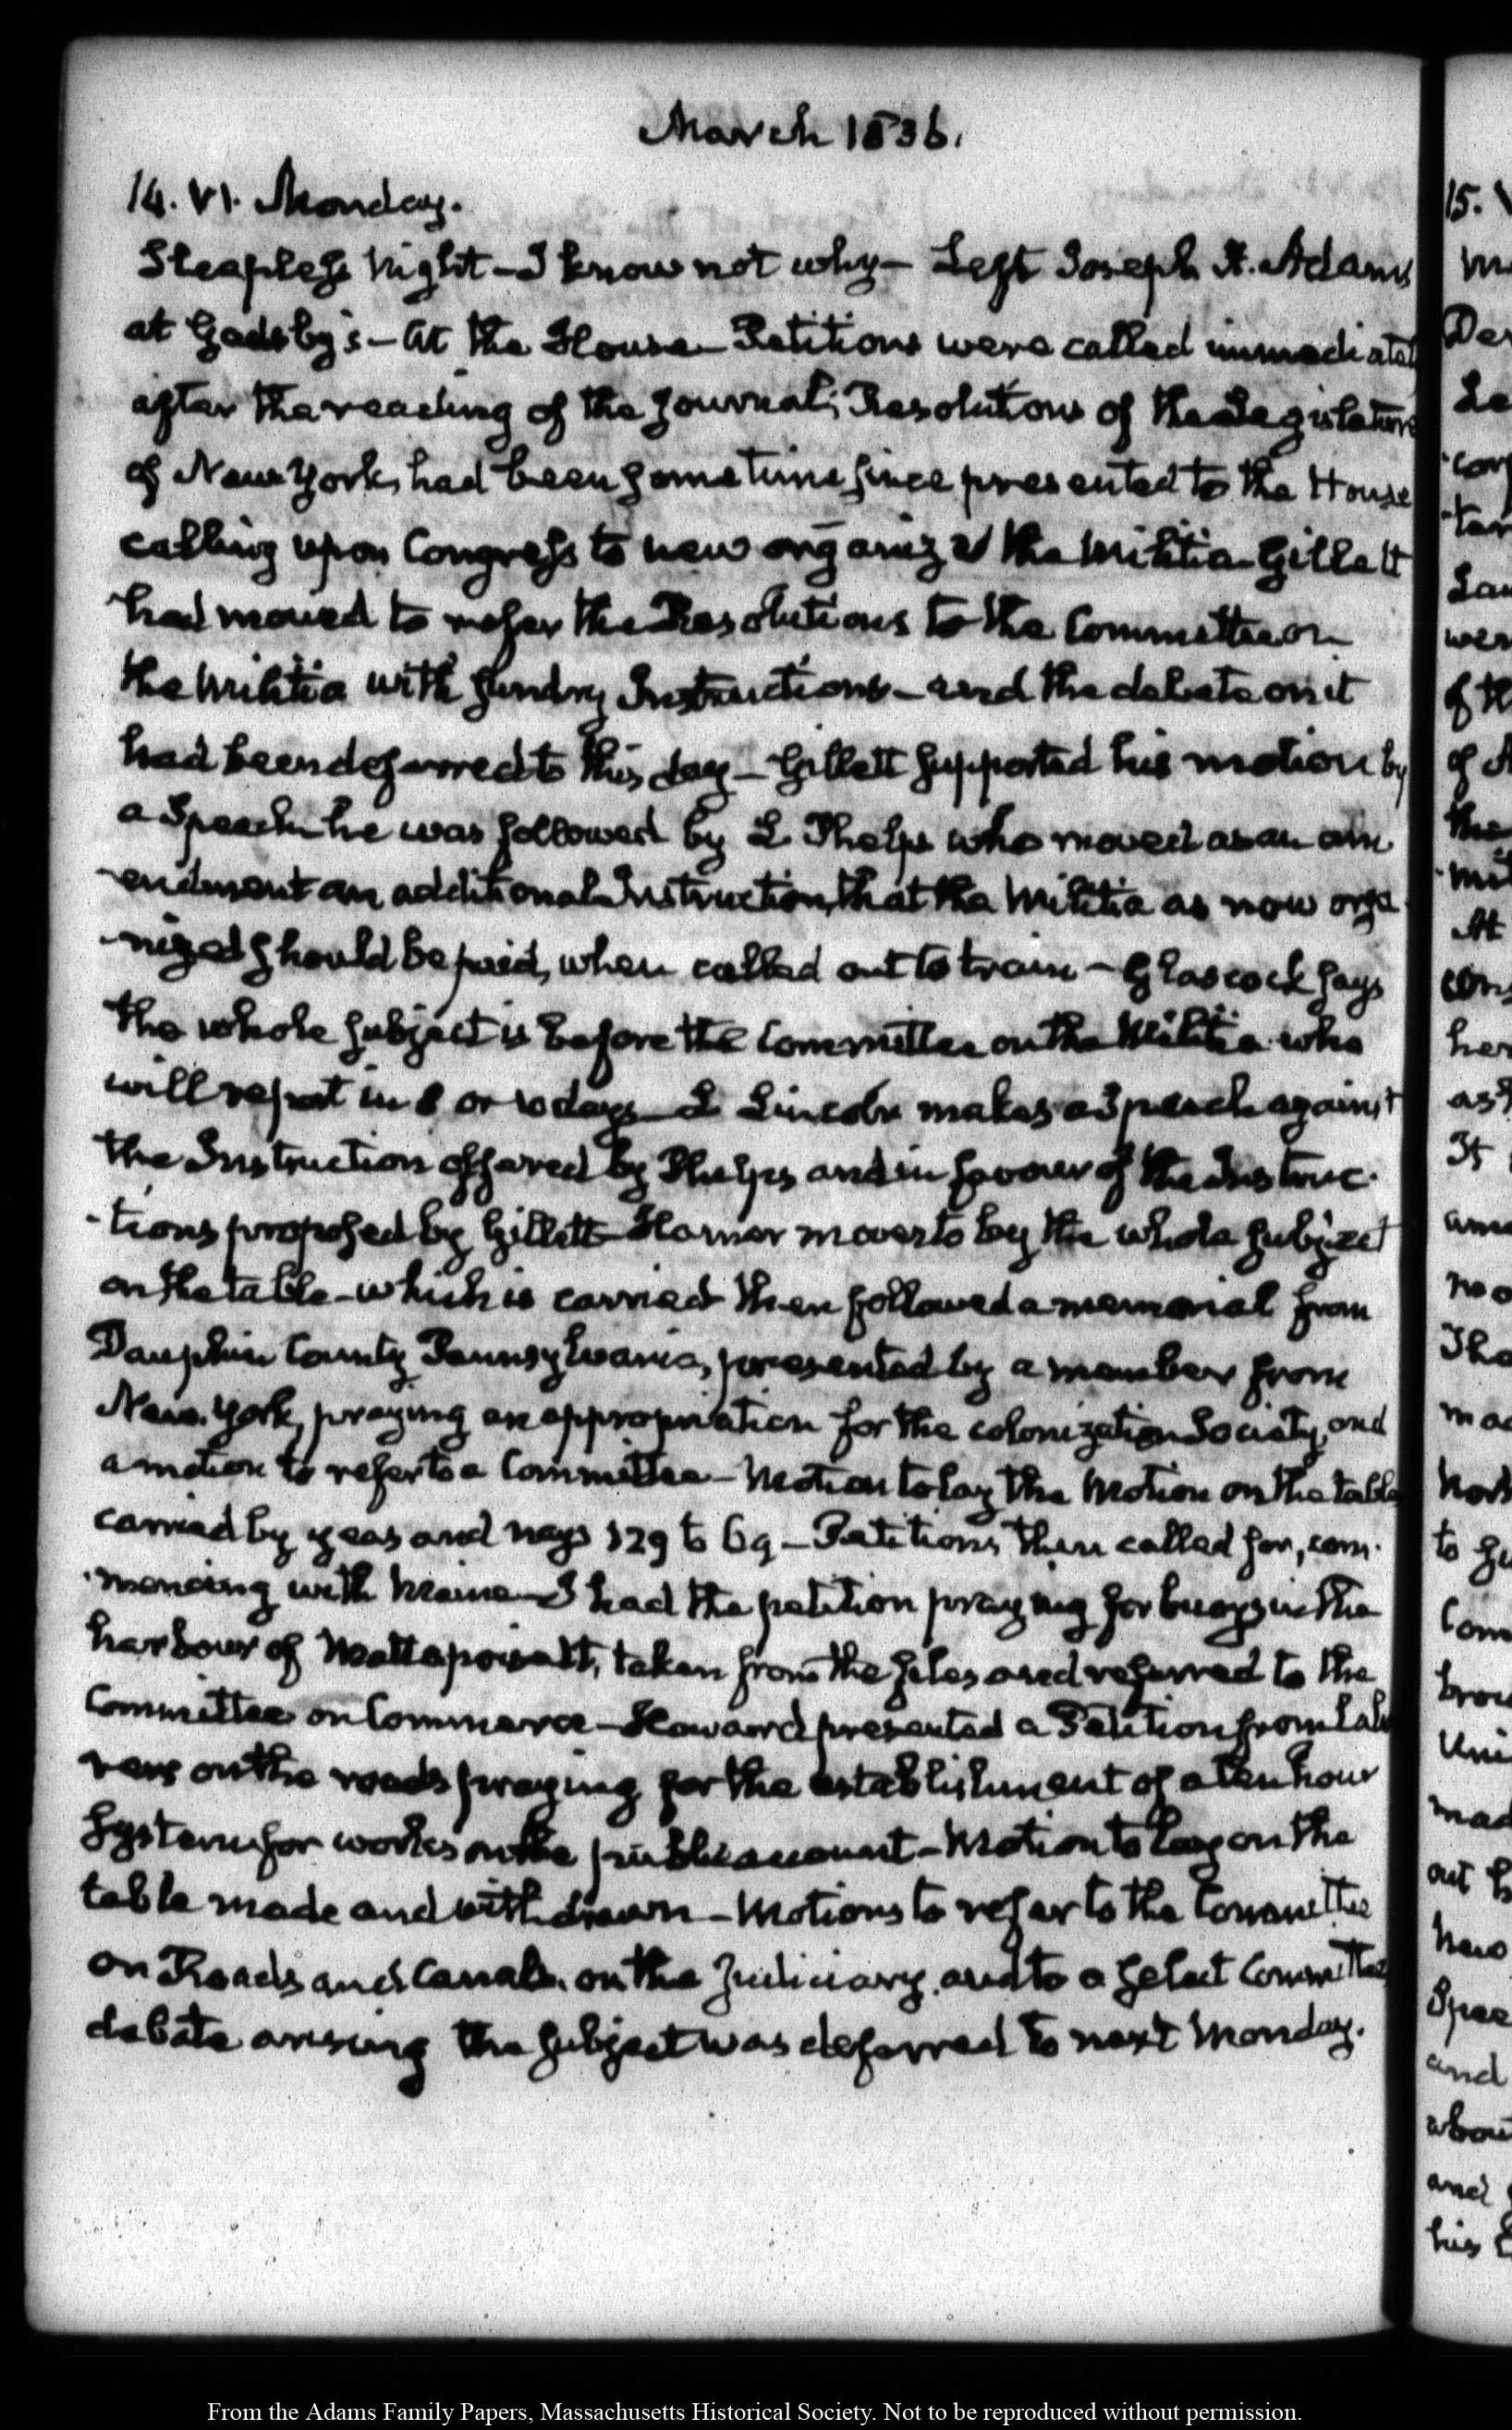 March 1836.
14. VI. Monday.
Sleepless Night – I know not why – Left Joseph H. Adams
at Gadsby's – At the House – Petitions were called immediately
after the reading of the Journal; Resolutions of the Legislature
of New York, had been sometime since presented to the House
calling upon Congress to new organize the Militia – Gillett
had moved to refer the Resolutions to the Committee on
the Militia with sundry Instructions – and the debate on it
had been deferred to this day – Gillett supported his motion by
a Speech he was followed by L Phelps who moved as an am
-endment an additional Instruction, that the Militia as now orga
-nized should be paid, when called out to train – Glascock says
the whole subject is before the Committee on the Militia who
will report in 8 or 10 days – L Lincoln makes a Speech against
the Instruction offered by Phelps and in favour of the Instruc-
-tions proposed by Gillett – Harner moves to lay the whole subject
on the table – which is carried then followed a memorial from
Dauphin County Pennsylvania, presented by a member from
New-York, praying an appropriation for the colonization Society, and
a motion to refer to a Committee – Motion to lay the Motion on the table
carried by yeas and nays 129 to 69 – Petitions then called for, com-
-mencing with Maine – I had the petition praying for buoys in the
harbour of Mattapoisett, taken from the files and referred to the
Committee on Commerce – Howard presented a Petition from Labo
rers on the roads praying for the establishment of a ten hour
system for works on the public account – Motion to lay on the
table made and withdrawn – Motions to refer to the Committee
on Roads and Canals. on the Judiciary. and to a select Committee
debate arising the subject was deferred to next Monday.
15.
From the Adams Family Papers, Massachusetts Historical Society. Not to be reproduced without permission.